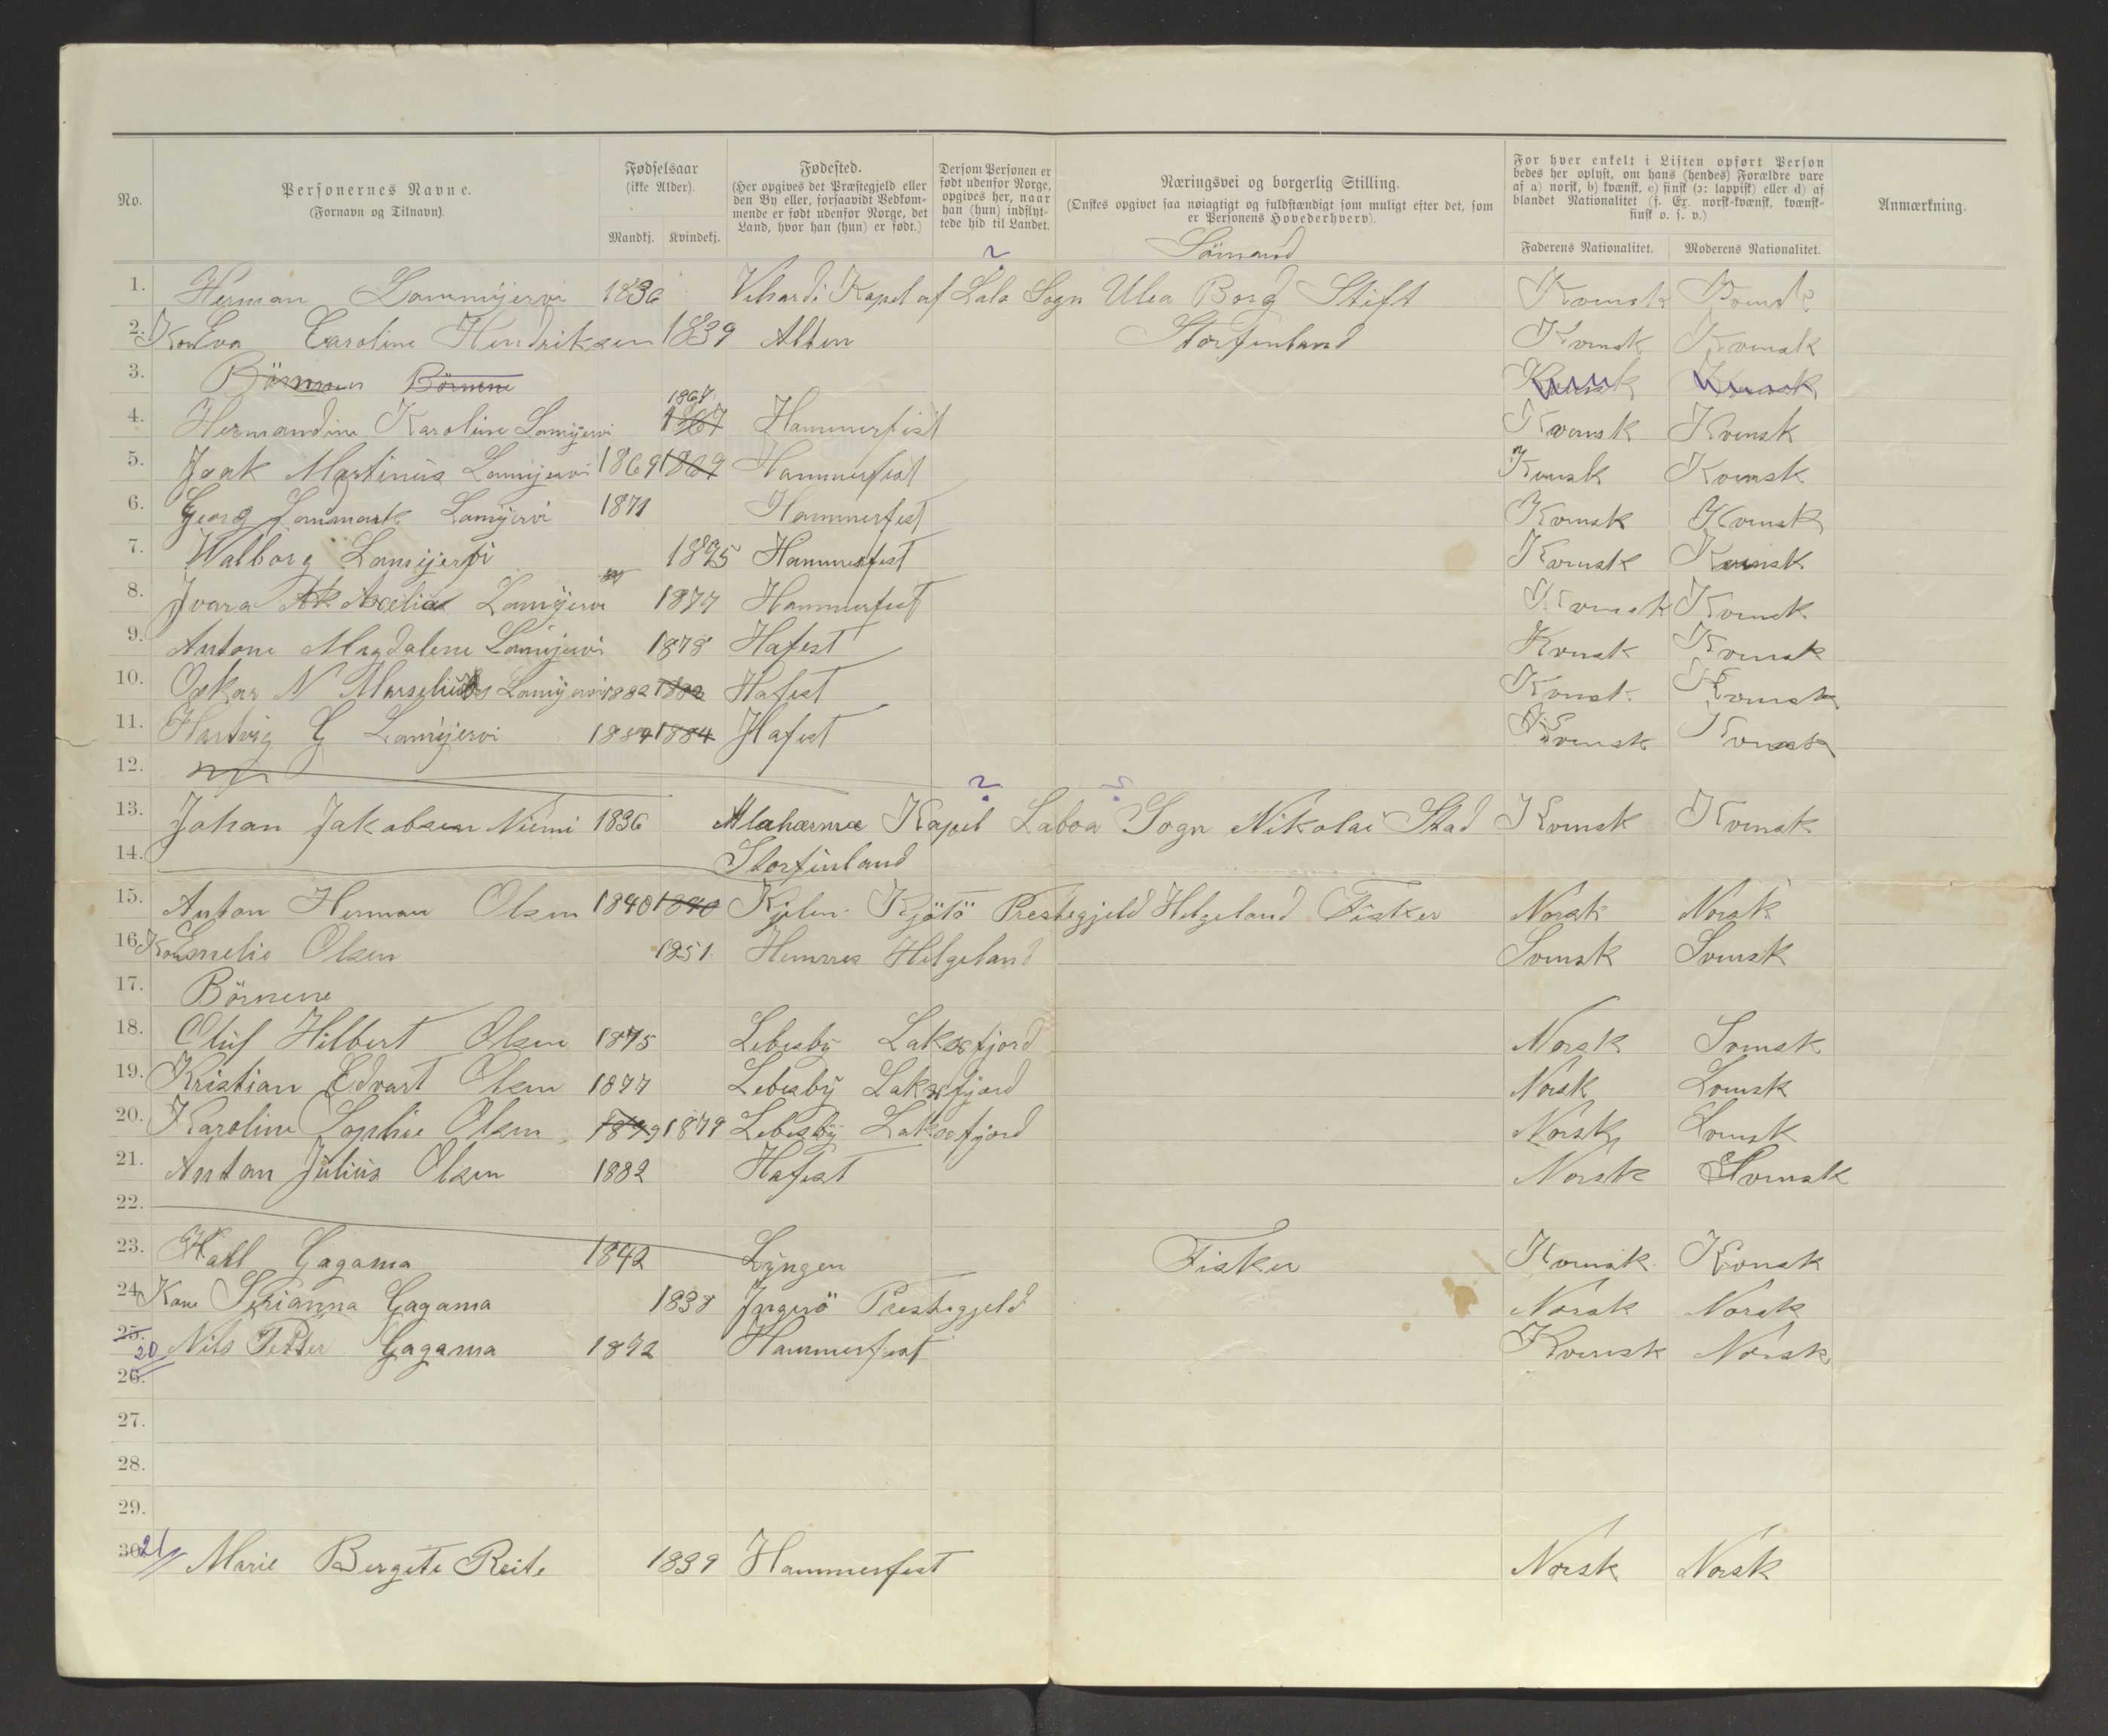 No.
Personernes Navne.
(Fornavn og Tilnavn).
Fødselsaar
(ikke Alder).
Mandkj. Kvindekj.
Fødested.
(Her opgives det Præstegjeld eller
den By eller, forsaavidt Vedkom-
mende er født udenfor Norge, det
Land, hvor han (hun) er født.)
Dersom Personen er
født udenfor Norge,
opgives her, naar
han (hun) indflyt-
tede hid til Landet.
Næringsvei og borgerlig Stilling.
(Ønskes opgivet saa nøiagtigt og fuldstændigt som muligt efter det, som
er Personens Hovederhverv).
For hver enkelt i Listen opført Person
bedes her oplyst, om hans (hendes) Forældre vare
af a) norsk, b) kvænsk, c) finsk (ɔ: lappisk) eller d) af
blandet Nationalitet (f. Ex. norsk-kvænsk, kvænsk-
finsk o. s. v.)
Faderens Nationalitet. Moderens Nationalitet.
Anmærkning.
Sömand
?
1. Herman Lommijervi 1836 Vihardi Kapel af Lalo Sogn Ulea Borg Stift Kvensk Kvensk
2. Kone Eva Caroline Hendriksen 1839 Alten Storfinland Kvensk Kvensk
3. Börnene Börnene Kvensk Kvensk
1867
4. Hermandine Karoline Lomijervi 1867 Hammerfest Kvensk Kvensk
5. Isak Martinus Lomijervi 1869 1869 Hammerfest Kvensk Kvensk
6. Georg Lomijervi 1871 Hammerfest Kvensk Kvensk
7. Walborg Lomijervi 1875 Hammerfest Kvensk Kvensk
8. Ivara Axelia Lomijervi 1877 Hammerfest Kvensk Kvensk
9. Antone Magdalene Lomijervi 1878 Hafest Kvensk Kvensk
10. Oskar N Marselius Lomijervi 1882 1882 Hafest Kvensk Kvensk
11. Hartvig G Lomijervi 1884 1884 Hafest Kvensk Kvensk
12.
? ?
13. Johan Jakobsen Niemi 1836 Alaharma Kapel Laboa Sogn Nikolai Stad Kvensk Kvensk
14. Storfinland
15. Anton Herman Olsen 1840 1840 Kjölö Prestegjeld Helgeland Fisker Norsk Norsk
16. Kone Emelie Olsen 1851 Hemnes Helgeland Svensk Svensk
17. Börnene
18. Oluf Hilbert Olsen 1875 Lebesby Laksefjord Norsk Svensk
19. Kristian Edvart Olsen 1877 Lebesby Laksefjord Norsk Svensk
20. Karoline Sophie Olsen 1879 1879 Lebesby Laksefjord Norsk Svensk
21. Anton Julius Olsen 1882 Hafest Norsk Svensk
22.
23. Karl Gagama 1842 Lyngen Fisker Kvensk Kvensk
24. Kone Serianna Gagama 1838 Ingerö Prestegjeld Norsk Norsk
25. 20 Nils Petter Gagama 1872 Hammerfest Kvensk Norsk
26.
27.
28.
29.
30. 21 Marie Bergete Reite 1839 Hammerfest Norsk Norsk